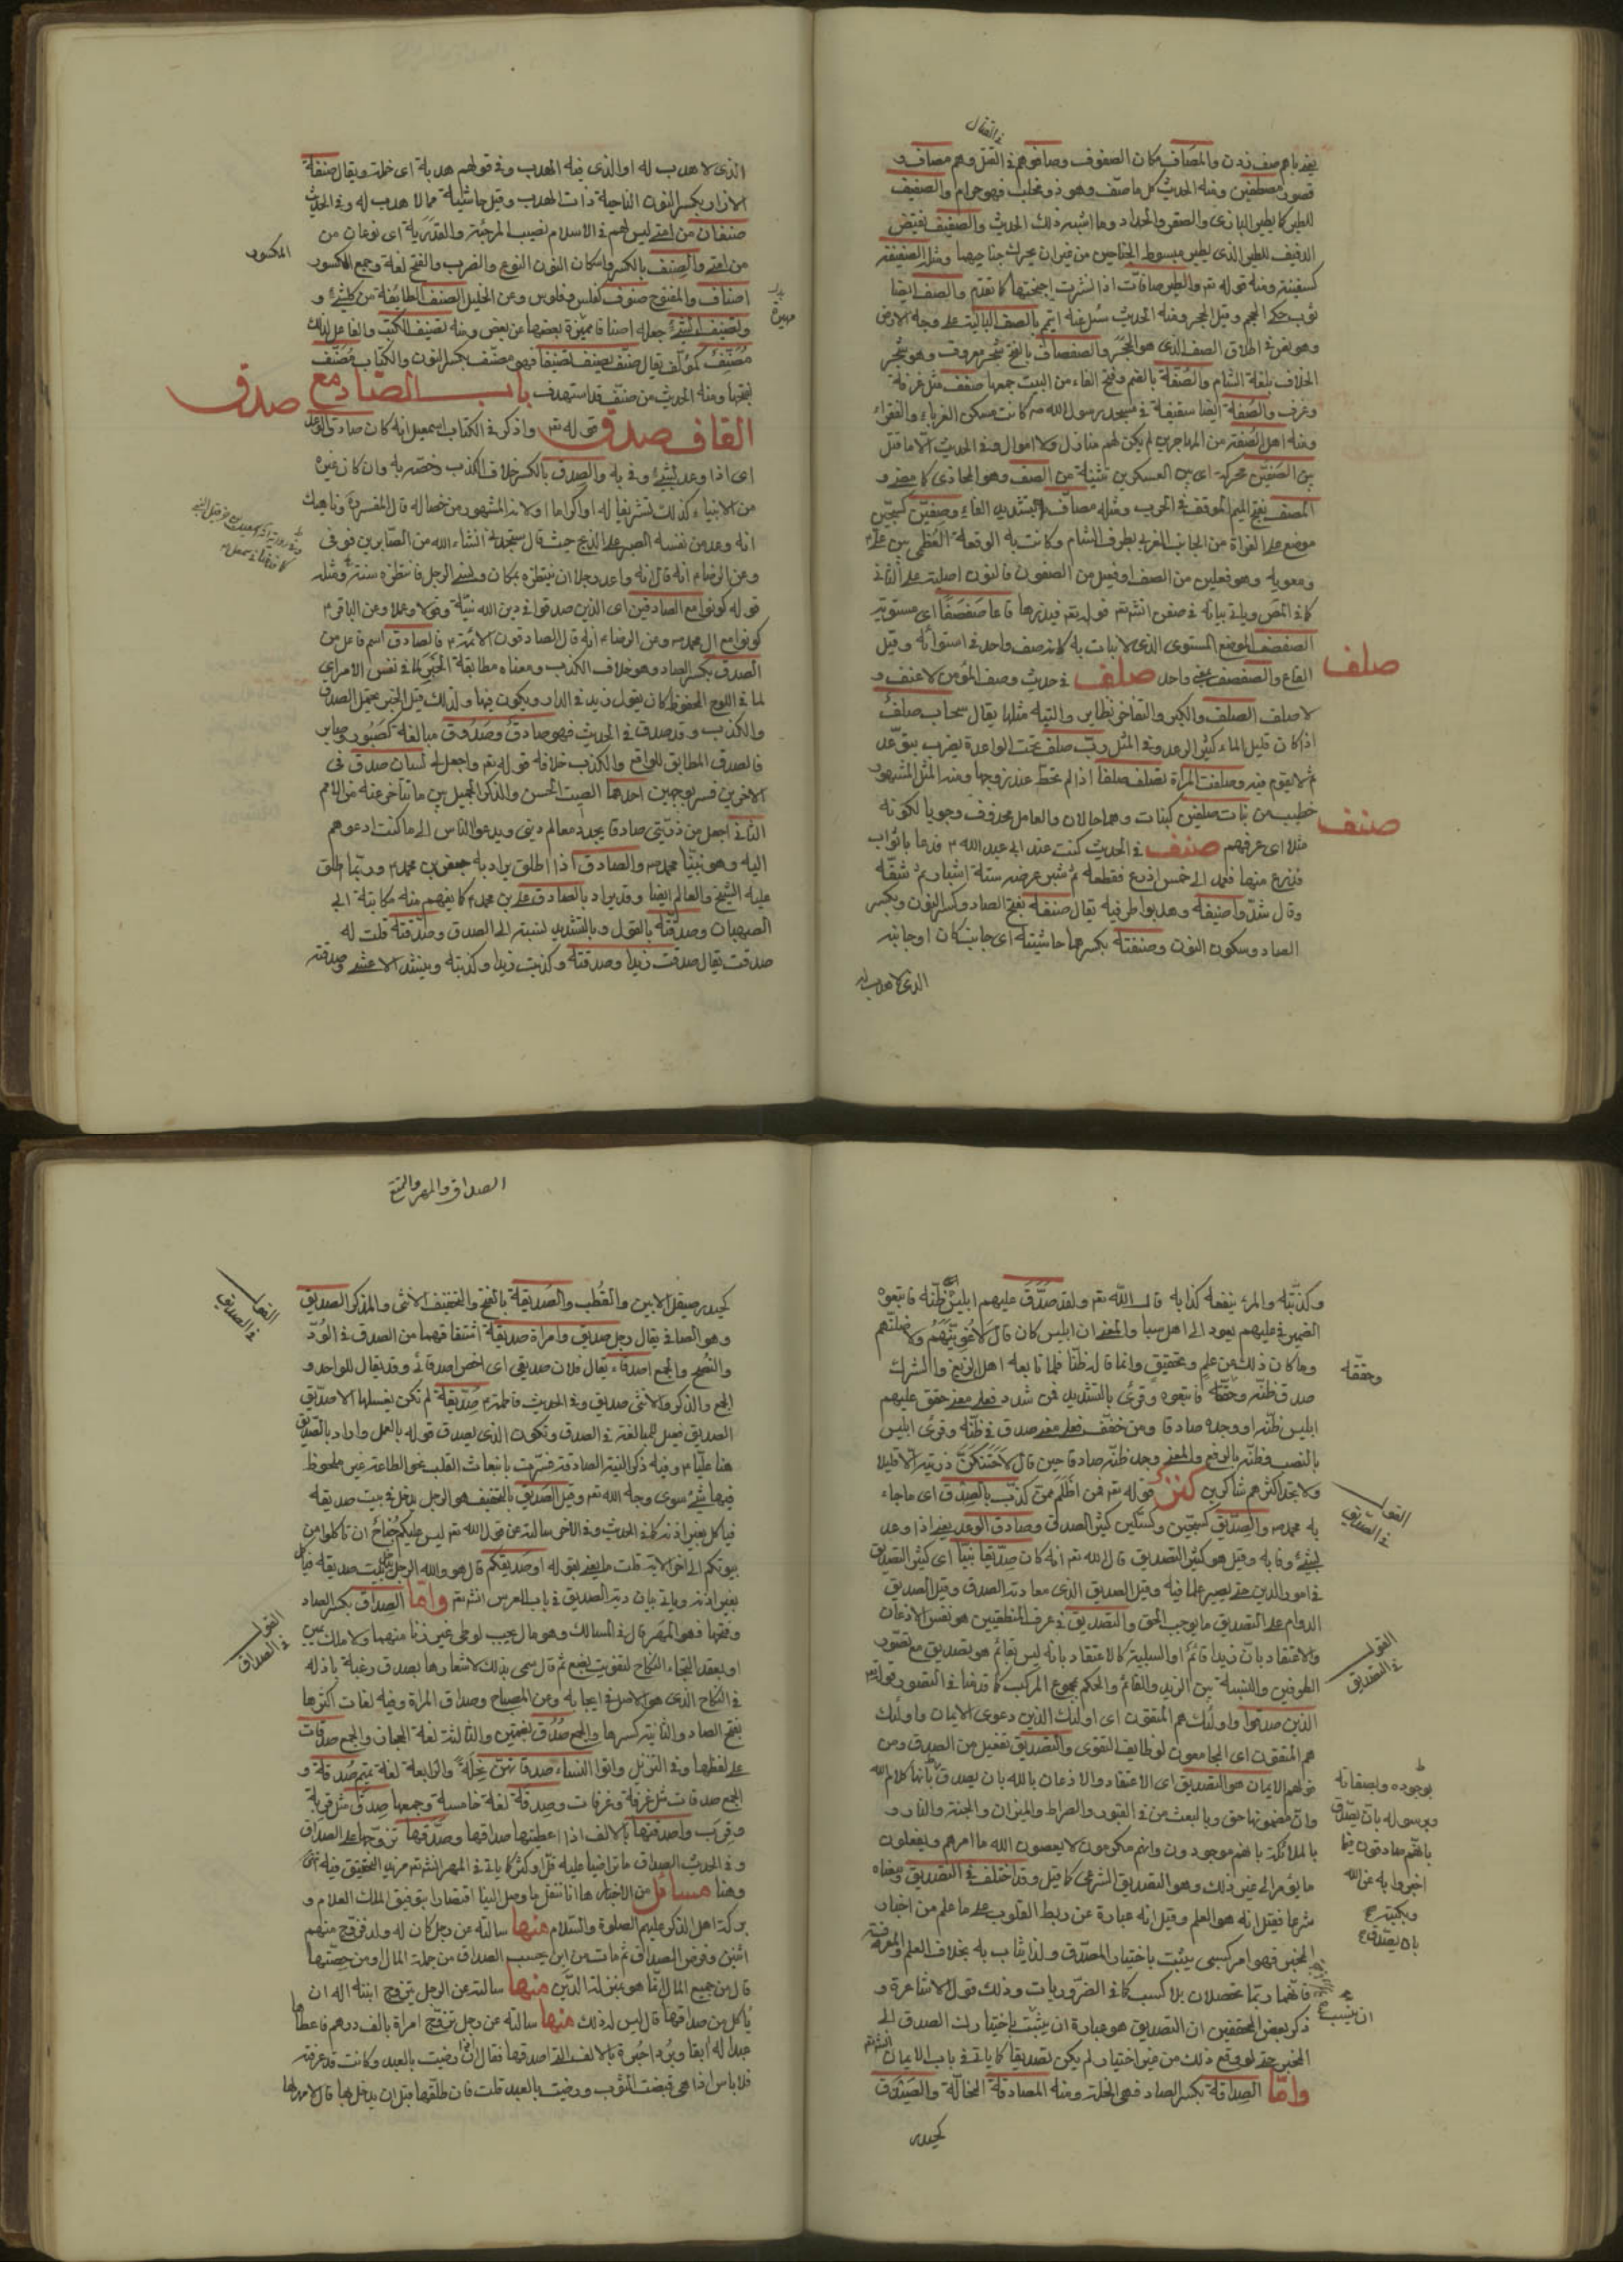 في القتال
يعني باهم صف بدن والمصاف مكان الصفوف وصافوهم في القتل وهم مصاف و
للطير كما يطير البازي والصقر والحداة وما اشبه ذلك الحديث والصفيف نقيض
الدفيف للطير الذي يطير مبسوط الجناحين من غير ان يحرك جناحيهما ومثله الصفيفة
كسفينة ومنه قوله تعم والطير صافات اذا نشرت اجنحتها كما تقدم والصف ايضا
وهو نص في اطلاق الصف الذي هو الحجر والصفصاف بالفتح شجر معروف وهو شجر
الخلاف بلغة الشام والصفة بالضم وفتح الفاء من البيت جمعها صفف مثل غرفة
وغرف والصفة ايضا سقيفة في مسجد رسول الله ص كانت مسكن الغرباء والفقراء
ومنه اهل الصفة من المهاجرين لم يكن لهم منازل ولا اموال وفي الحديث الا ما قتل
بين الصفين محركة اي بين العسكرين تثنية من الصف وهو المحاذي كما مضى و
المصف بفتح الميم الموقف في الحرب ومثله مصاف بتشديد الفاء وصفين كسجين
موضع على الفراة من الجانب الغربي بطرف الشام وكانت به الوقعة العظمى بين علي ع
ومعوية وهو فعلين من الصف او فعيل من الصفون فالنون اصلية على الثاني
كما في المص وياتي بيانه في صفن انش تعم قوله تعم فيذرها قاعا صفصفا اي مستوية
الصفصف الموضع المستوي الذي لا نبات به كانه صف واحد في استوائه وقيل
القاع والصفصف بمعنى واحد صلف في حديث وصف المؤمن لا عنف و
صلف
لا صلف الصلف والكبر والتفاخر نظاير والتيه مثلها يقال سحاب صلف
اذا كان قليل الماء كثير الرعد وفي المثل رب صلف تحت الراعدة يضرب يتوعد
ثم لا يقوم فيه وصلفت المراة تصلف صلفا اذا لم تحظ عند زوجها ومنه المثل المشهور
صنف
مثلا اي عرفهم صنف في الحديث كنت عند ابي عبد الله ع فدعا باثواب
فذرع منها فعمد الى خمس اذرع فقطعه ثم شبر عرضه ستة اشبار ثم شقه
وقال شدوا صنيفه وهدبوا طرفيه يقال صنفة بفتح الصاد وكسر النون وبكسر
الصاد وسكون النون وصنفته بكسرها حاشيته اي جانب كان او جانبه
الذي لا هدب له
الذي لا هدب له او الذي فيه الهدب وفي قولهم هدبة اي خملته ويقال صنفة
الازار بكسر النون الناحية ذات الهدب وقيل حاشية مما لا هدب له وفي الحديث
صنفان من امتي ليس لهم في الاسلام نصيب المرجئة والقدرية اي نوعان من
من امتي والصنف بالكسر واسكان النون النوع والضرب والفتح لغة وجمع المكسور
المكسور
اصناف والمفتوح صنوف كفلس وفلوس وعن الخليل الصنف الطايفة من كل شئ و
وتصنيف الشئ جعله اصنافا مميزة بعضها عن بعض ومنه تصنيف الكتب والفاعل لذلك
مصنف كمؤلف يقال صنف يصنف تصنيفا فهو مصنف بكسر النون والكتاب مصنف
بفتحها ومنه الحديث من صنف فقد استهدف باب الصاد مع
صدق
القاف صدق قوله تعم واذكر في الكتاب اسمعيل انه كان صادق الوعد
اي اذا وعد بشئ وفى به والصدق بالكسر خلاف الكذب وخصه به وان كان غيره
من الانبياء كذلك تشريفا له او اكراما او لانه المشهور من خصاله قال المفسر وناهيك
انه وعد من نفسه الصبر على الذبح حيث قال ستجدني انشاء الله من الصابرين فوفى
وعن الرضا ع انه قال انه واعد رجلا ان ينتظره بمكان ونسي الرجل فانتظره سنة ومثله
قوله كونوا مع الصادقين اي الذين صدقوا في دين الله نية وقولا وعملا وعن الباقر ع
كونوا مع ال محمد ص وعن الرضا ع انه قال الصادقون الائمة ع فالصادق اسم فاعل من
الصدق بكسر الصاد وهو خلاف الكذب ومعناه مطابقة الخبر لما في نفس الامر اي
لما في اللوح المحفوظ كان يقول زيد في الدار ويكون فيها ولذلك قيل الخبر يحتمل الصدق
والكذب وقد صدق في الحديث فهو صادق وصدوق مبالغة كصبور وصابر
فالصدق المطابق للواقع والكذب خلافه قوله تعم واجعل لي لسان صدق في
الاخرين فسر بوجهين احدهما الصيت الحسن والذكر الجميل بين ما تتاخر عنه من الامم
الثاني اجعل من ذريتي صادقا يجدد معالم ديني ويدعو الناس الى ما كنت ادعوهم
اليه وهو نبينا محمد ص والصادق اذا اطلق يراد به جعفر بن محمد ع وربما اطلق
عليه الشيخ والعالم ايضا وقد يراد بالصادق علي بن محمد ع كما يفهم منه مكاتبة ابي
الصهبان وصدقته بالقول وبالتشديد لنسبته الى الصدق وصدقته قلت له
صدقت يقال صدقت زيدا وصدقته وكذبت زيدا وكذبته وينشد الاعشى وصدقته
وكذبته والمرء ينفعه كذابه قال الله تعم ولقد صدق عليهم ابليس ظنه فاتبعوه
الضمير في عليهم يعود الى اهل سبا والمعنى ان ابليس كان قال لاغوينهم ولاضلنهم
وما كان ذلك عن علم وتحقيق وانما قاله ظنا فلما تابعه اهل الزيغ والشرك
وحققه
صدق ظنه وحققه فاتبعوه وقرئ بالتشديد فمن شدد فعلى معنى حقق عليهم
ابليس ظنه او وجده صادقا ومن خفف فعلى معنى صدق في ظنه وقرئ ابليس
بالنصب وظنه بالرفع والمعنى وجد ظنه صادقا حين قال لاحتنكن ذريته الا قليلا
القول في الصديق
به محمد ص والصديق كسجين وكسكين كثير الصدق وصادق الوعد يعني اذا وعد
بشئ وفا به وقيل هو كثير التصديق قال الله تعم انه كان صديقا نبيا اي كثير التصديق
في امور الدين حتى يصير علما فيه وقيل الصديق الذي عادته الصدق وقيل الصديق
الدوام على التصديق ما يوجب الحق والتصديق في عرف المنطقيين هو نفس الاذعان
والاعتقاد بان زيدا قائم او السلبية كالاعتقاد بانه ليس بقائم هو تصديق مع تصور
القول في التصديق
الطرفين والنسبة بين الزيد والقائم والحكم مجموع المركب كما قدمنا في التصور قوله تعم
الذين صدقوا واولئك هم المتقون اي اولئك الذين دعوى الايمان واولئك
هم المتقون اي الجامعون لوظايف التقوى والتصديق تفعيل من الصدق ومن
قولهم الايمان هو التصديق اي الاعتقاد والاذعان بالله بان يصدق بانها كلام الله
بوجوده وبصفاته
وبرسوله بان يصدق
بانهم صادقون فيما
اخبروا به عن الله
وبكتبه
بان يصدق
وان مضمونها حق وبالبعث من في القبور والصراط والميزان والجنة والنار و
بالملائكة بانهم موجودون وانهم مكرمون لا يعصون الله ما امرهم ويفعلون
ما يؤمر الى غير ذلك وهو التصديق الشرعي كما قيل وقد اختلف في التصديق ومعناه
شرعا فقيل انه هو العلم وقيل انه عبارة عن ربط القلوب على ما علم من اخبار
المخبر فهو امر كسبي يثبت باختيار المصدق ولذا يثاب به بخلاف العلم والمعرفة
فانهما ربما تحصلان بلا كسب كما في الضروريات وذلك قول الاشاعرة و
ذكر بعض المحققين ان التصديق هو عبارة ان يثبت باختيارك الصدق الى
ان ينسب
المخبر حتى لو وقع ذلك من غير اختيار لم يكن تصديقا كما ياتي في باب الايمان انش تعم
واما الصداقة بكسر الصاد فهي الخلة ومنه المصادقة المخالة والصيدق
كحيدر
الصداق والمهر والمتع
كحيدر صيقل الابين والقطب والصديقة بالفتح والتخفيف الانثى والمذكر الصديق
القول في الصديق
وهو الصافي يقال رجل صديق وامراة صديقة اشتقاقهما من الصدق في الود
والنصح والجمع اصدقاء يقال فلان صديقي اي اخص اصدقائي وقد يقال للواحد و
الجمع والذكر والانثى صديق وفي الحديث فاطمة ع صديقة لم تكن يغسلها الا صديق
الصديق فعيل للمبالغة في الصدق وتكون الذي يصدق قوله بالعمل واراد بالصديق
هنا عليا ع وفيه ذكر النية الصادقة فسرت بانبعاث القلب نحو الطاعة غير ملحوظ
فيها شئ سوى وجه الله تعم وقيل الصديق بالتخفيف هو الرجل يدخل في بيت صديقه
فياكل بغير اذنه كما في الحديث وفي الاخر سالته عن قول الله تعم ليس عليكم جناح ان تاكلوا من
بيوتكم الى اخر الاية قلت ما يعني بقوله او صديقكم قال هو والله الرجل يدخل بيت صديقه فياكل
بغير اذنه وياتي بيان دية الصديق في باب العرس انش تعم واما الصداق بكسر الصاد
وفتحها فهو المهر قال في المسالك وهو مال يجب لوطي غير زنا منهما ولا ملك يمين
القول في الصداق
في النكاح الذي هو الاصل في ايجابه وعن المصباح وصداق المراة وفيه لغات اكثرها
بفتح الصاد والثانية كسرها والجمع صدق بضمتين والثالثة لغة الحجاز والجمع صدقات
على لفظها وفي التنزيل واتوا النساء صدقاتهن نحلة والرابعة لغة تميم صدقة و
الجمع صدقات مثل غرفة وغرفات وصدقة لغة خامسة وجمعها صدق مثل قرية
وقرى واصدقتها بالالف اذا اعطيتها صداقها وصدقها تزوجها على الصداق
وفي الحديث الصداق ما تراضيا عليه قل او كثر كما ياتي في المهر انش تعم مزيد التحقيق فيه
وهنا مسائل من الاخبار ها انا ننقل ما وصل الينا اقتصارا بتوفيق الملك العلام و
بركة اهل الذكر عليهم الصلوة والسلام منها سالته عن رجل كان له ولد فزوج منهم
اثنين وفرض الصداق ثم مات من اين يحسب الصداق من جملة المال او من حصتهما
قال من جميع المال انما هو بمنزلة الدين منها سالته عن الرجل يتزوج ابنته اله ان
ياكل من صداقها قال ليس له ذلك منها سالته عن رجل تزوج امراة بالف درهم فاعطاها
عبدا له ابقا وبردا حبرة بالالف التي اصدقها فقال اذا رضيت بالعبد وكانت قد عرفته
فلا باس اذا هي قبضت الثوب ورضيت بالعبد قلت فان طلقها قبل ان يدخل بها قال لا مهر لها